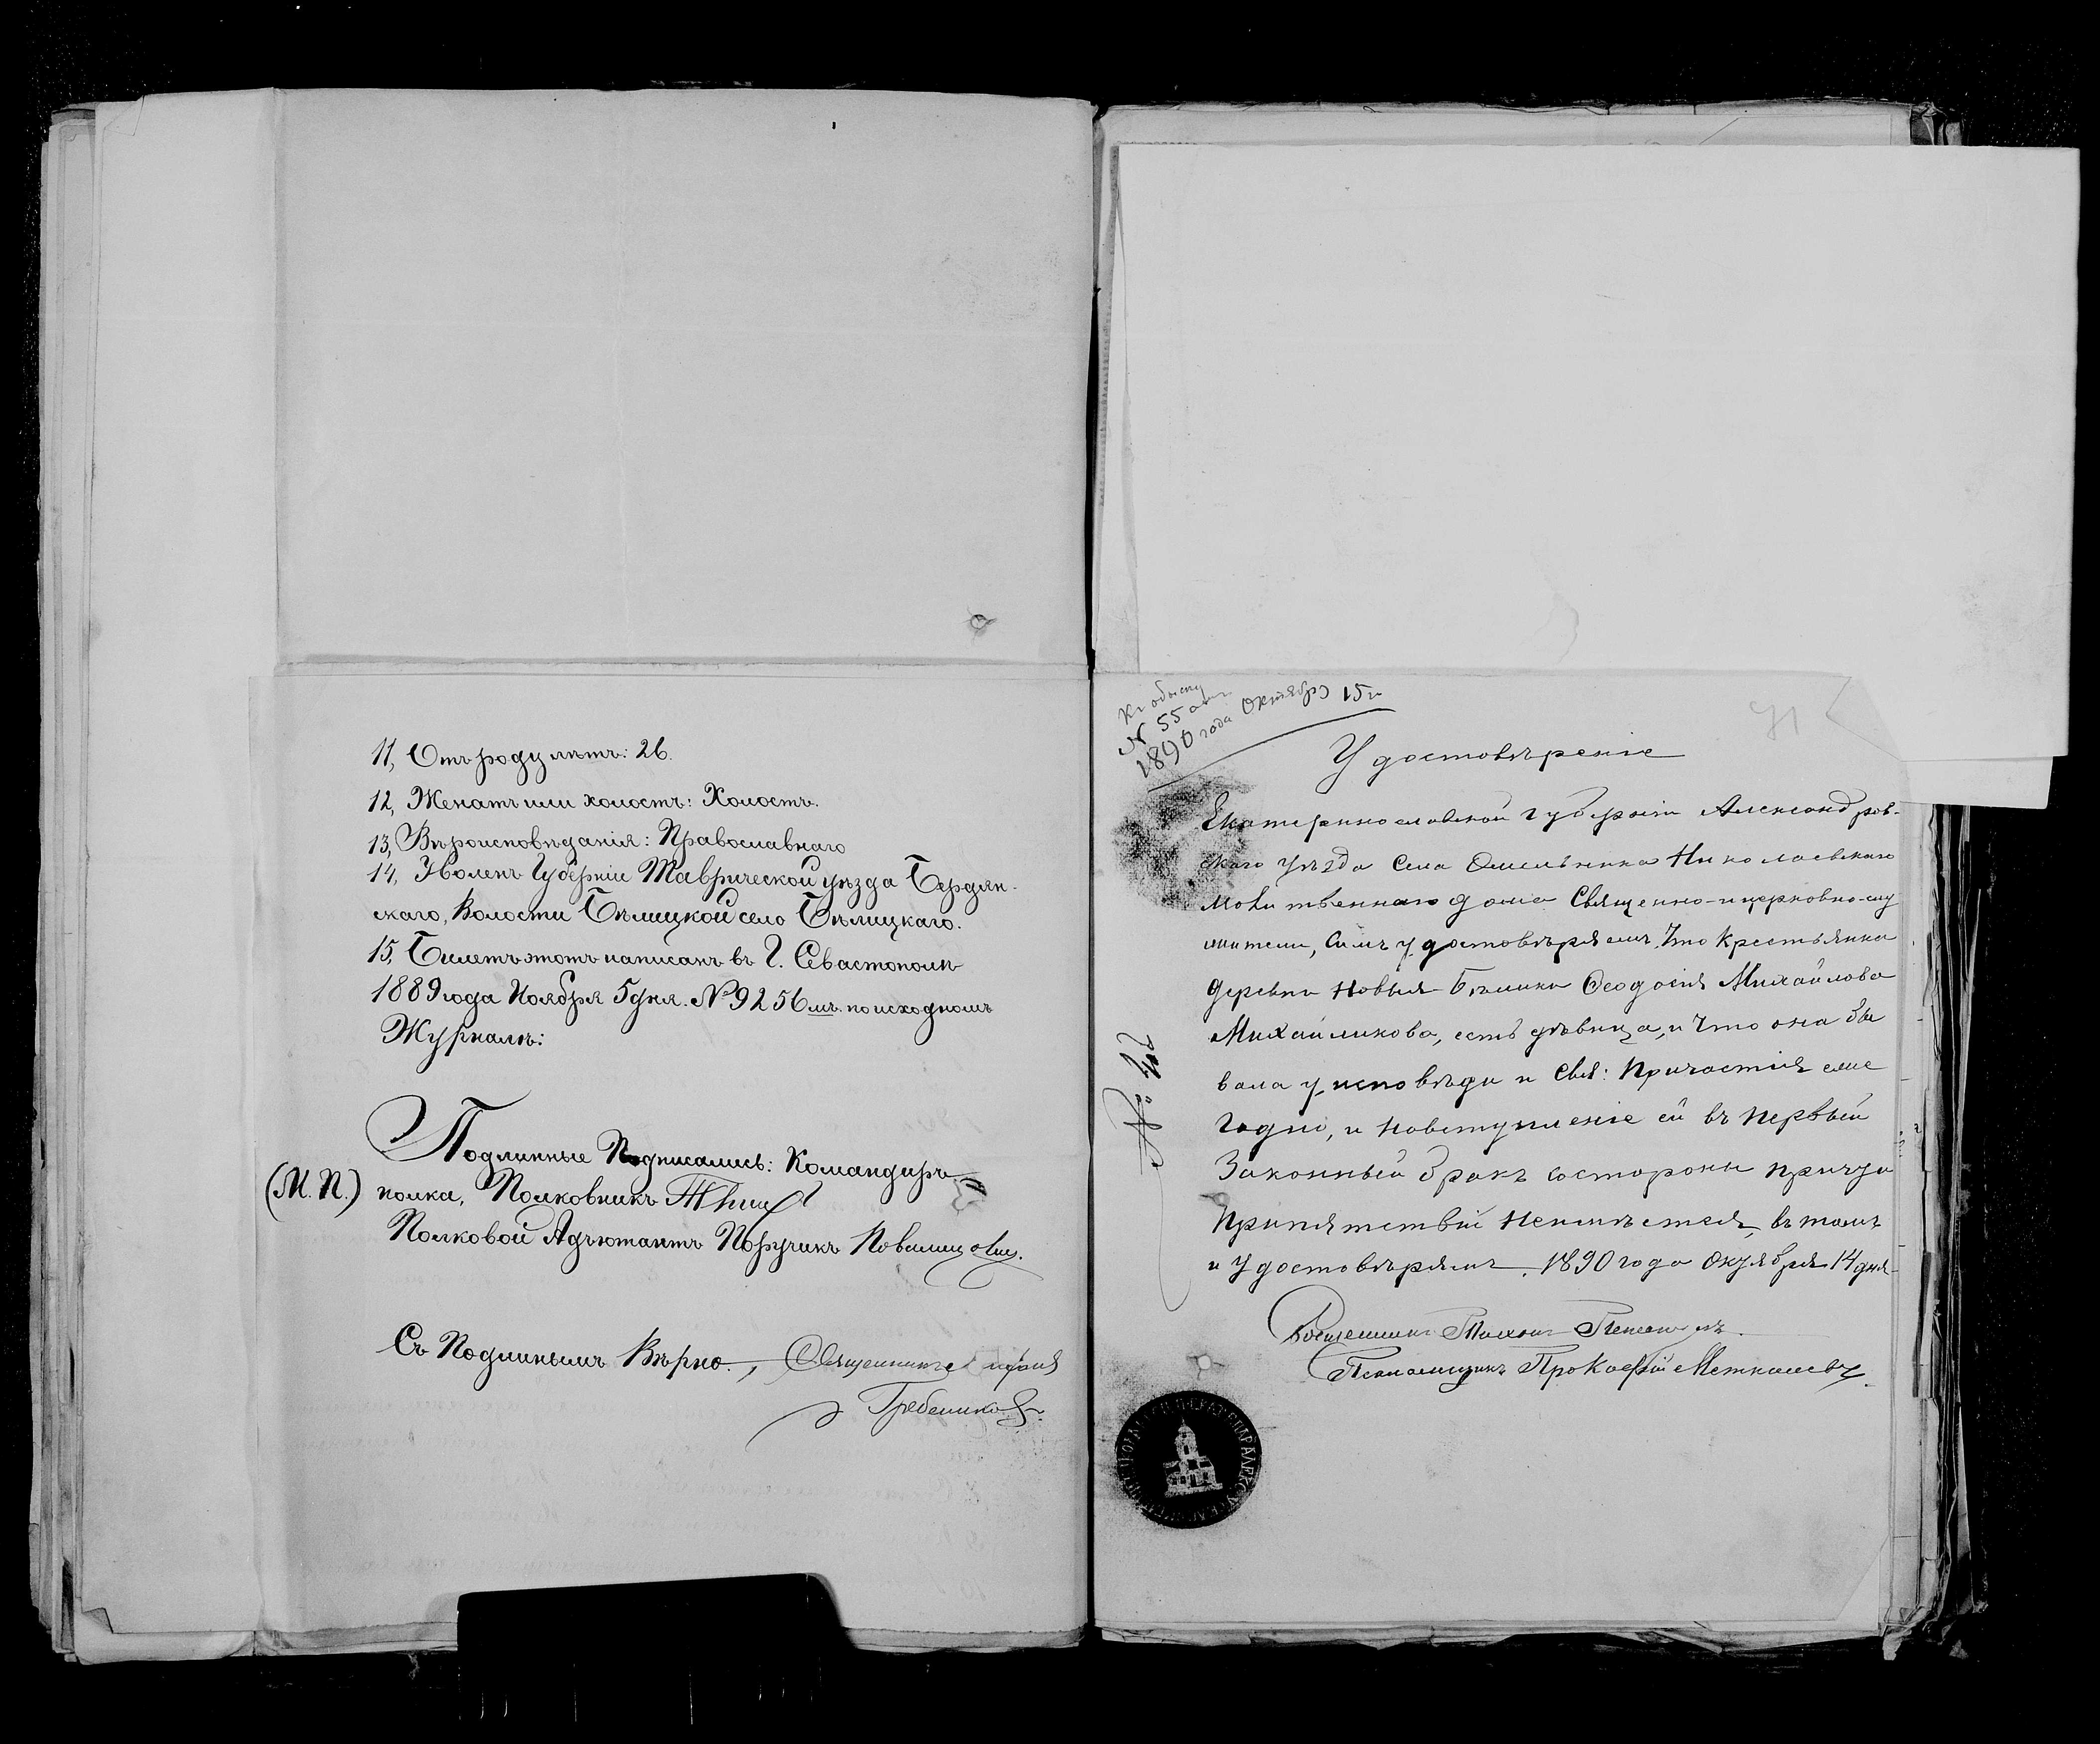 11, Отъ роду лѣтъ: 26.
12, Женатъ или холостъ: Холостъ.
13, Вѣроисповѣданія: Православнаго
14, Уволенъ Губерніи Таврической уѣзда Бердян-
скаго, Волости Бѣлицкой село Бѣлицкаго.
15, Билетъ этотъ написанъ въ Г. Севастополѣ
1889 года Ноября 5 дня. № 9256 мъ по исходномъ
Журналѣ:
Подлинные Подписались: Командиръ
(М. П.) полка, Полковникъ
Полковой Адъютантъ Поручикъ
Съ Подлинымъ Вѣрно, Священникъ
Гребенико
Къ обыску
№ 55
1890 года Октября 15
№ 42
Удостовѣреніе
Екатеринославской губерніи Александров-
скаго уѣзда Села Омельника Николаевскаго
молитвеннаго дома Священно-и церковно-слу
жители, Симъ удостовѣряемъ, что Крестьянка
деревни Новыя Бѣлики Ѳеодосія Михайлова
Михайликова, есть дѣвица, и что она бы
вала у исповѣди и Свя: Причастія еже
годно, и на вступленіе ей въ первый
Законный бракъ со стороны причта
препятствій неимѣется, въ томъ
и удостовѣряемъ. 1890 года Окуября 14 дня
Священникъ
Псаломщикъ Прокофій Меткалевъ